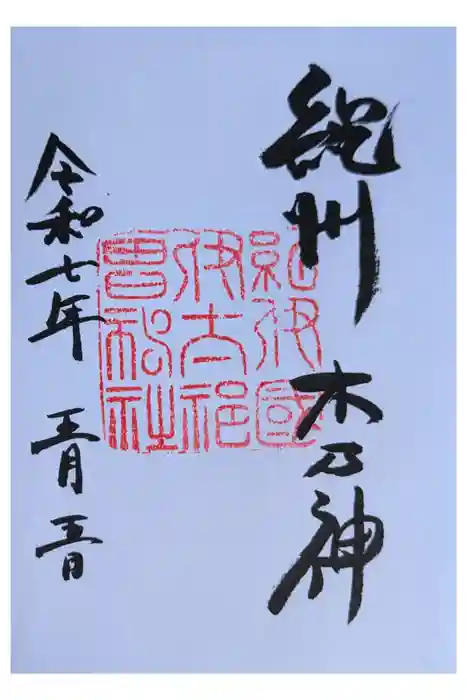 紀州　木乃神
紀伊國
伊太祁
曾神社
令和七年　五月五日